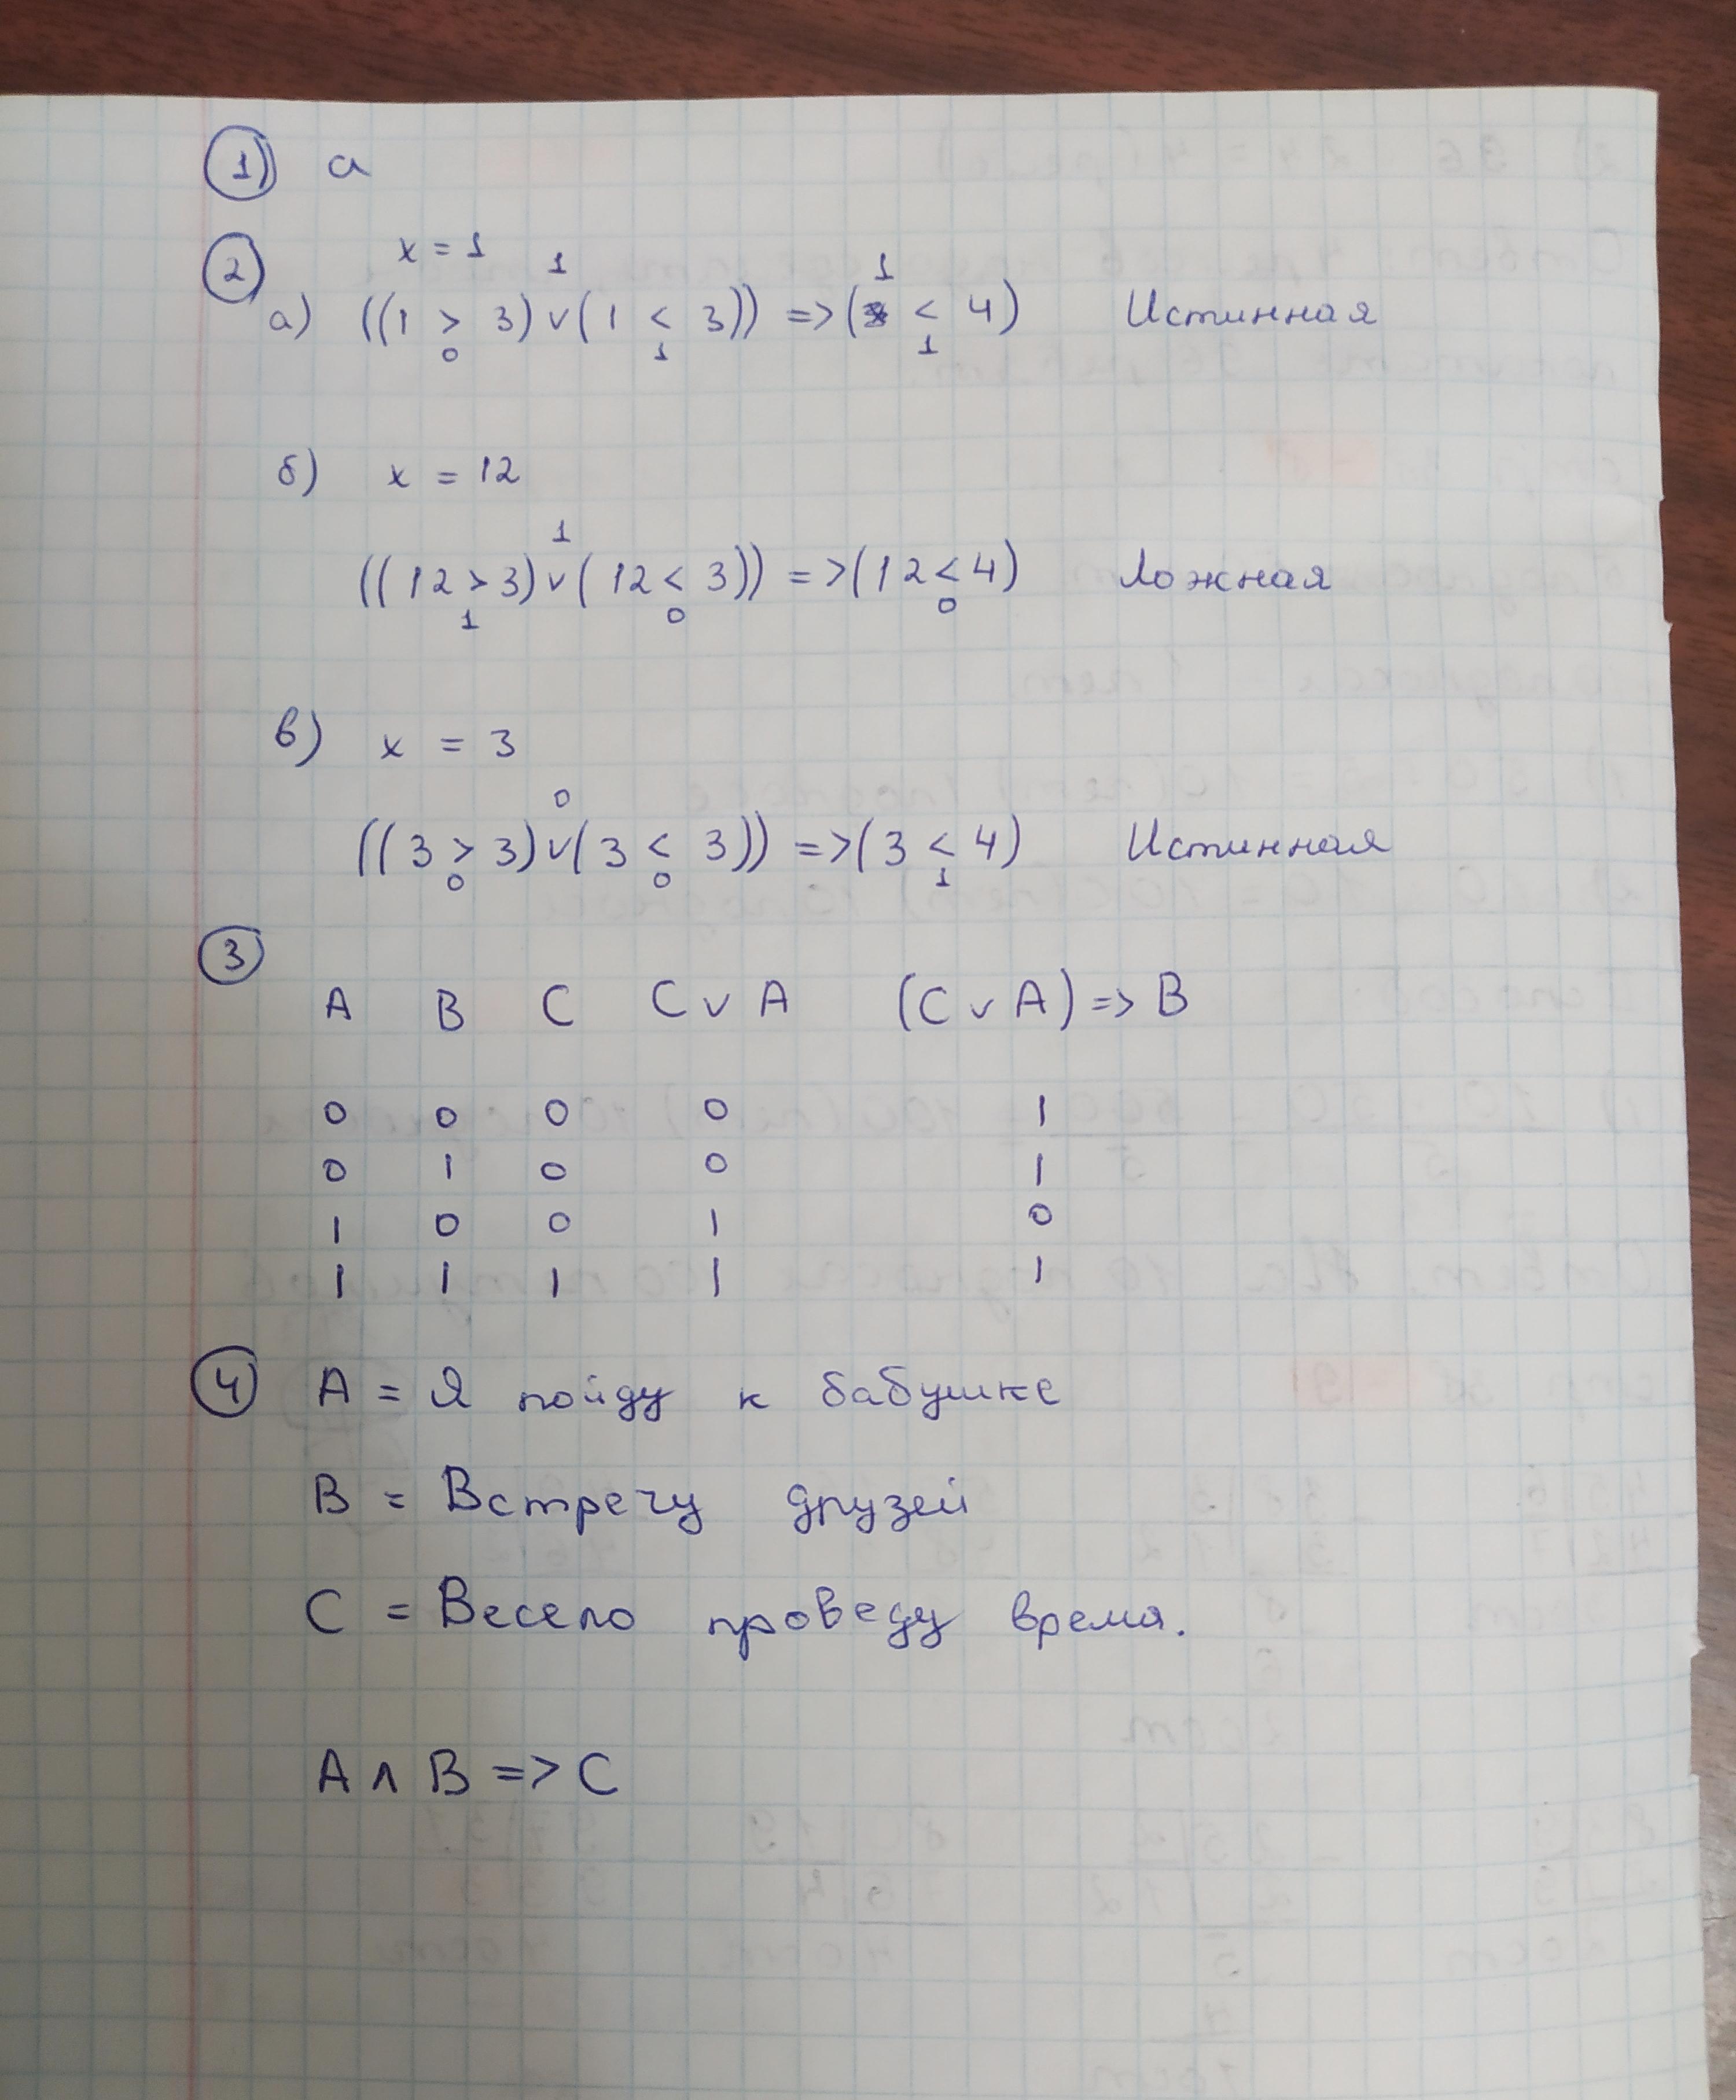 1) а
2 x = 1
1 1
а) ((1 > 3) ∨ (1 < 3)) => ( < 4) Истинная
0 1 1
б) x = 12
1
((12 > 3) ∨ (12 < 3)) => (12 < 4) Ложная
1 0 0
в) x = 3
0
((3 > 3) ∨ (3 < 3)) => (3 < 4) Истинная
0 0 1
3
A B C C ∨ A (C ∨ A) => B
0 0 0 0 1
0 1 0 0 1
1 0 0 1 0
1 1 1 1 1
4 A = Я пойду к бабушке
B = Встречу друзей
C = Весело проведу время.
A ∧ B => C